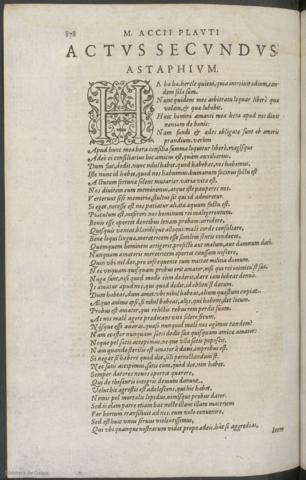 878 M. ACCII PLAVTI
ACTVS SECVNDVS.
ASTAPHIVM.
HA ha ha, hercle quieui, quia introiuit odium, tan-
dem sola sum.
Nunc quidem meo arbitratu loquar liberè quæ
volam, & quæ lubebit.
Huic homini amanti mea hera apud nos dixit
neniam de bonis:
Nam fundi & ædes obligatæ sunt ob amoris
prædium. verùm
Apud hunc mea hera consilia summa loquitur liberè, magisque
Adeò ei consiliarius hic amicus est, quàm auxiliarius.
Dum fuit, dedit, nunc nihil habet. quod habebat, nos habemus,
Iste nunc id habet, quod nos habuimus. humanum facinus factu est
Actutum fortunæ solent mutarier. varia vita est.
Nos diuitem eum meminimus, atque iste pauperes nos.
Verterunt sese memoriæ, stultus sit qui id admiretur.
Si eget, necesse est nos patiatur
Piaculum est, miserere nos hominum rei malegerentum.
Bonis esse oportet dentibus lenam probam: arridere,
Quisquis veniat, blandéque alloqui: malè corde consultare,
Bene loqui lingua. meretricem esse similem sentis condecet,
Quemquem hominem attigerit, profectò aut malum, aut damnum dari.
Nunquam amatoris meretricem oportet caussam noscere,
Quin vbi nil det, pro infrequente eum mittat militia domum.
Ne vnquam quisquam probus erit amator, nisi qui rei inimicu'st suæ.
Nugæ sunt, nisi quod modò cùm dederis, dare iam lubeat denuò.
Is amatur apud nos, qui quod dedit, id oblitu'st datum.
Dum habeat, dum amet. vbi nihil habeat, alium quæstum
Æquo animo ipse si nihil habeat, aliis, qui habent, det locum.
Probus est amator, qui relictis rebus rem perdit suam.
At nos malè agere prædicant viri solere secum,
Nósque esse auaras. quasi nunquid malè nos agimus tandem?
Nam ecastor nunquam satis dedit suæ quisquam amicæ amator:
Neque pol satis accepimus, neque vlla satis poposcit.
Nam quando sterilis est amator à datis, improbus est.
Si negat se habere quod det, soli pernoctandum st.
Nec satis accipimus, satis cùm, quod det, non habet.
Semper datores nouos oportet quærere,
Qui de thesauris integris demum
Velut hic agrestis est adolescens, qui hîc habet,
Nimis pol mortalis lepidus, nimísque probus dator.
Sed is clam patre etiam hac nocte illac illum materiem
Per hortum transiluit ad nos. eum volo conuenire.
Sed est huic vnus seruus violentissimus,
Qui vbi quanque nostrarum videt prope ædeis, hîc si aggrediat,
Item